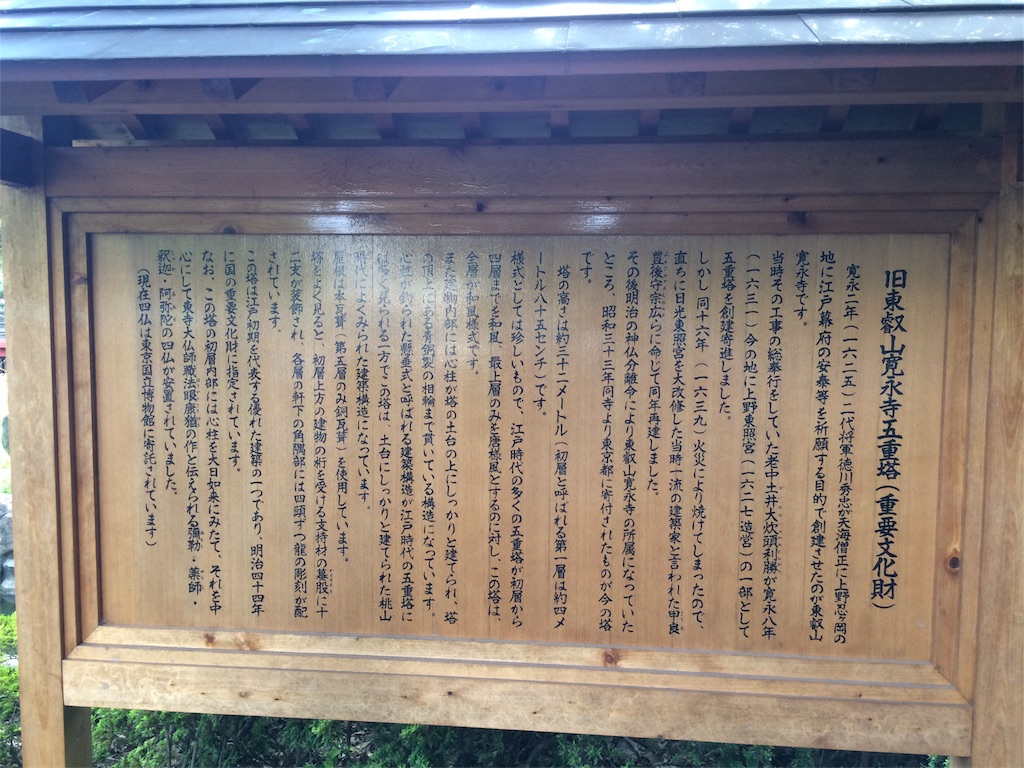 旧東叡山寛永寺五重塔(重要文化財)
寛永二年(一六二五)二代将軍徳川秀忠が天海僧正に上野忍ヶ岡の
地に江戸幕府の安泰等を祈願する目的で創建させたのが東叡山
寛永寺です。
当時その工事の総奉行をしていた老中土井大炊頭利勝が寛永八年
(一六三一)今の地に上野東照宮(一六二七造営)の一部として
五重塔を創建寄進しました。
しかし同十六年(一六三九)火災により焼けてしまったので、
直ちに日光東照宮を大改修した当時一流の建築家と言われた甲良
豊後守宗広らに命じて同年再建しました。
その後明治の神仏分離令により東叡山寛永寺の所属になっていた
ところ、昭和三十三年同寺より東京都に寄付されたものが今の塔
です。
塔の高さは約三十二メートル(初層と呼ばれる第一層は約四メ
ートル八十五センチ)です。
様式としては珍しいもので、江戸時代の多くの五重塔が初層から
四層までを和風、最上層のみを唐様風とするのに対し、この塔は、
全層が和風様式です。
また建物内部には心柱が塔の土台の上にしっかりと建てられ、塔
の頂上にある青銅製の相輪まで貫いている構造になっています。
心柱が釣られた懸垂式と呼ばれる建築構造が江戸時代の五重塔に
は多く見られる一方でこの塔は、土台にしっかりと建てられた桃山
時代によくみられた建築構造になっています。
屋根は本瓦葺(第五層のみ銅瓦葺)を使用しています。
塔をよく見ると、初層上方の建物の桁を受ける支持材の蟇股に十
二支が装飾され、各層の軒下の角隅部には四頭ずつ龍の彫刻が配
されています。
この塔は江戸初期を代表する優れた建築の一つであり、明治四十四年
に国の重要文化財に指定されています。
なお、この塔の初層内部には心柱を大日如来にみたて、それを中
心にして東寺大仏師職法眼康猶の作と伝えられる弥勒・薬師・
釈迦・阿弥陀の四仏が安置されていました。
(現在四仏は東京国立博物館に寄託されています)